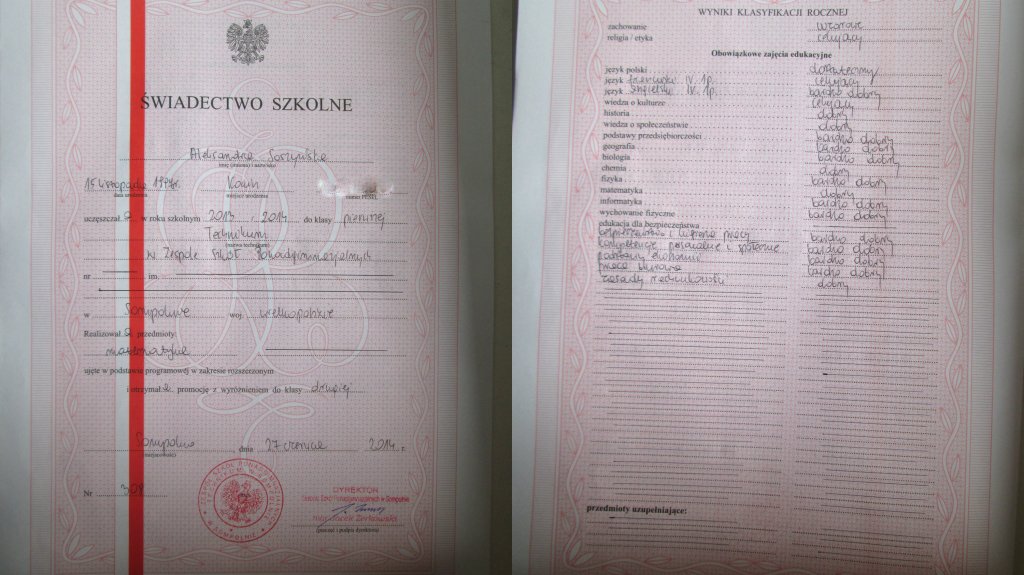 ŚWIADECTWO SZKOLNE
Aleksandra
imię (imiona) i nazwisko
15 listopada 1997r. Konin
data urodzenia miejsce urodzenia numer PESEL
uczęszczał a w roku szkolnym 2013 / 2014 do klasy pierwszej
Technikum
(nazwa technikum)
w Zespole Szkół Ponadgimnazjalnych
nr im.
w Sompolnie woj. wielkopolskie
Realizował a przedmioty
matematyka
ujęte w podstawie programowej w zakresie rozszerzonym
i otrzymał a promocję z wyróżnieniem do klasy drugiej
Sompolno, dnia 27 czerwca 2014 r.
(miejscowość)
Nr 308
DYREKTOR
Zespołu Szkół Ponadgimnazjalnych w Sompolnie
mgr Jacek Zerkowski
(pieczęć i podpis dyrektora)
WYNIKI KLASYFIKACJI ROCZNEJ
zachowanie wzorowe
religia / etyka celujący
Obowiązkowe zajęcia edukacyjne
język polski dostateczny
język IV. 1p. celujący
język angielski IV. 1p. bardzo dobry
wiedza o kulturze celujący
historia dobry
wiedza o społeczeństwie dobry
podstawy przedsiębiorczości bardzo dobry
geografia bardzo dobry
biologia bardzo dobry
chemia dobry
fizyka bardzo dobry
matematyka dobry
informatyka bardzo dobry
wychowanie fizyczne bardzo dobry
edukacja dla bezpieczeństwa
bezpieczeństwo i higiena pracy bardzo dobry
kompetencje personalne i społeczne bardzo dobry
podstawy ekonomii bardzo dobry
praca biurowa bardzo dobry
zasady rachunkowości dobry
przedmioty uzupełniające: